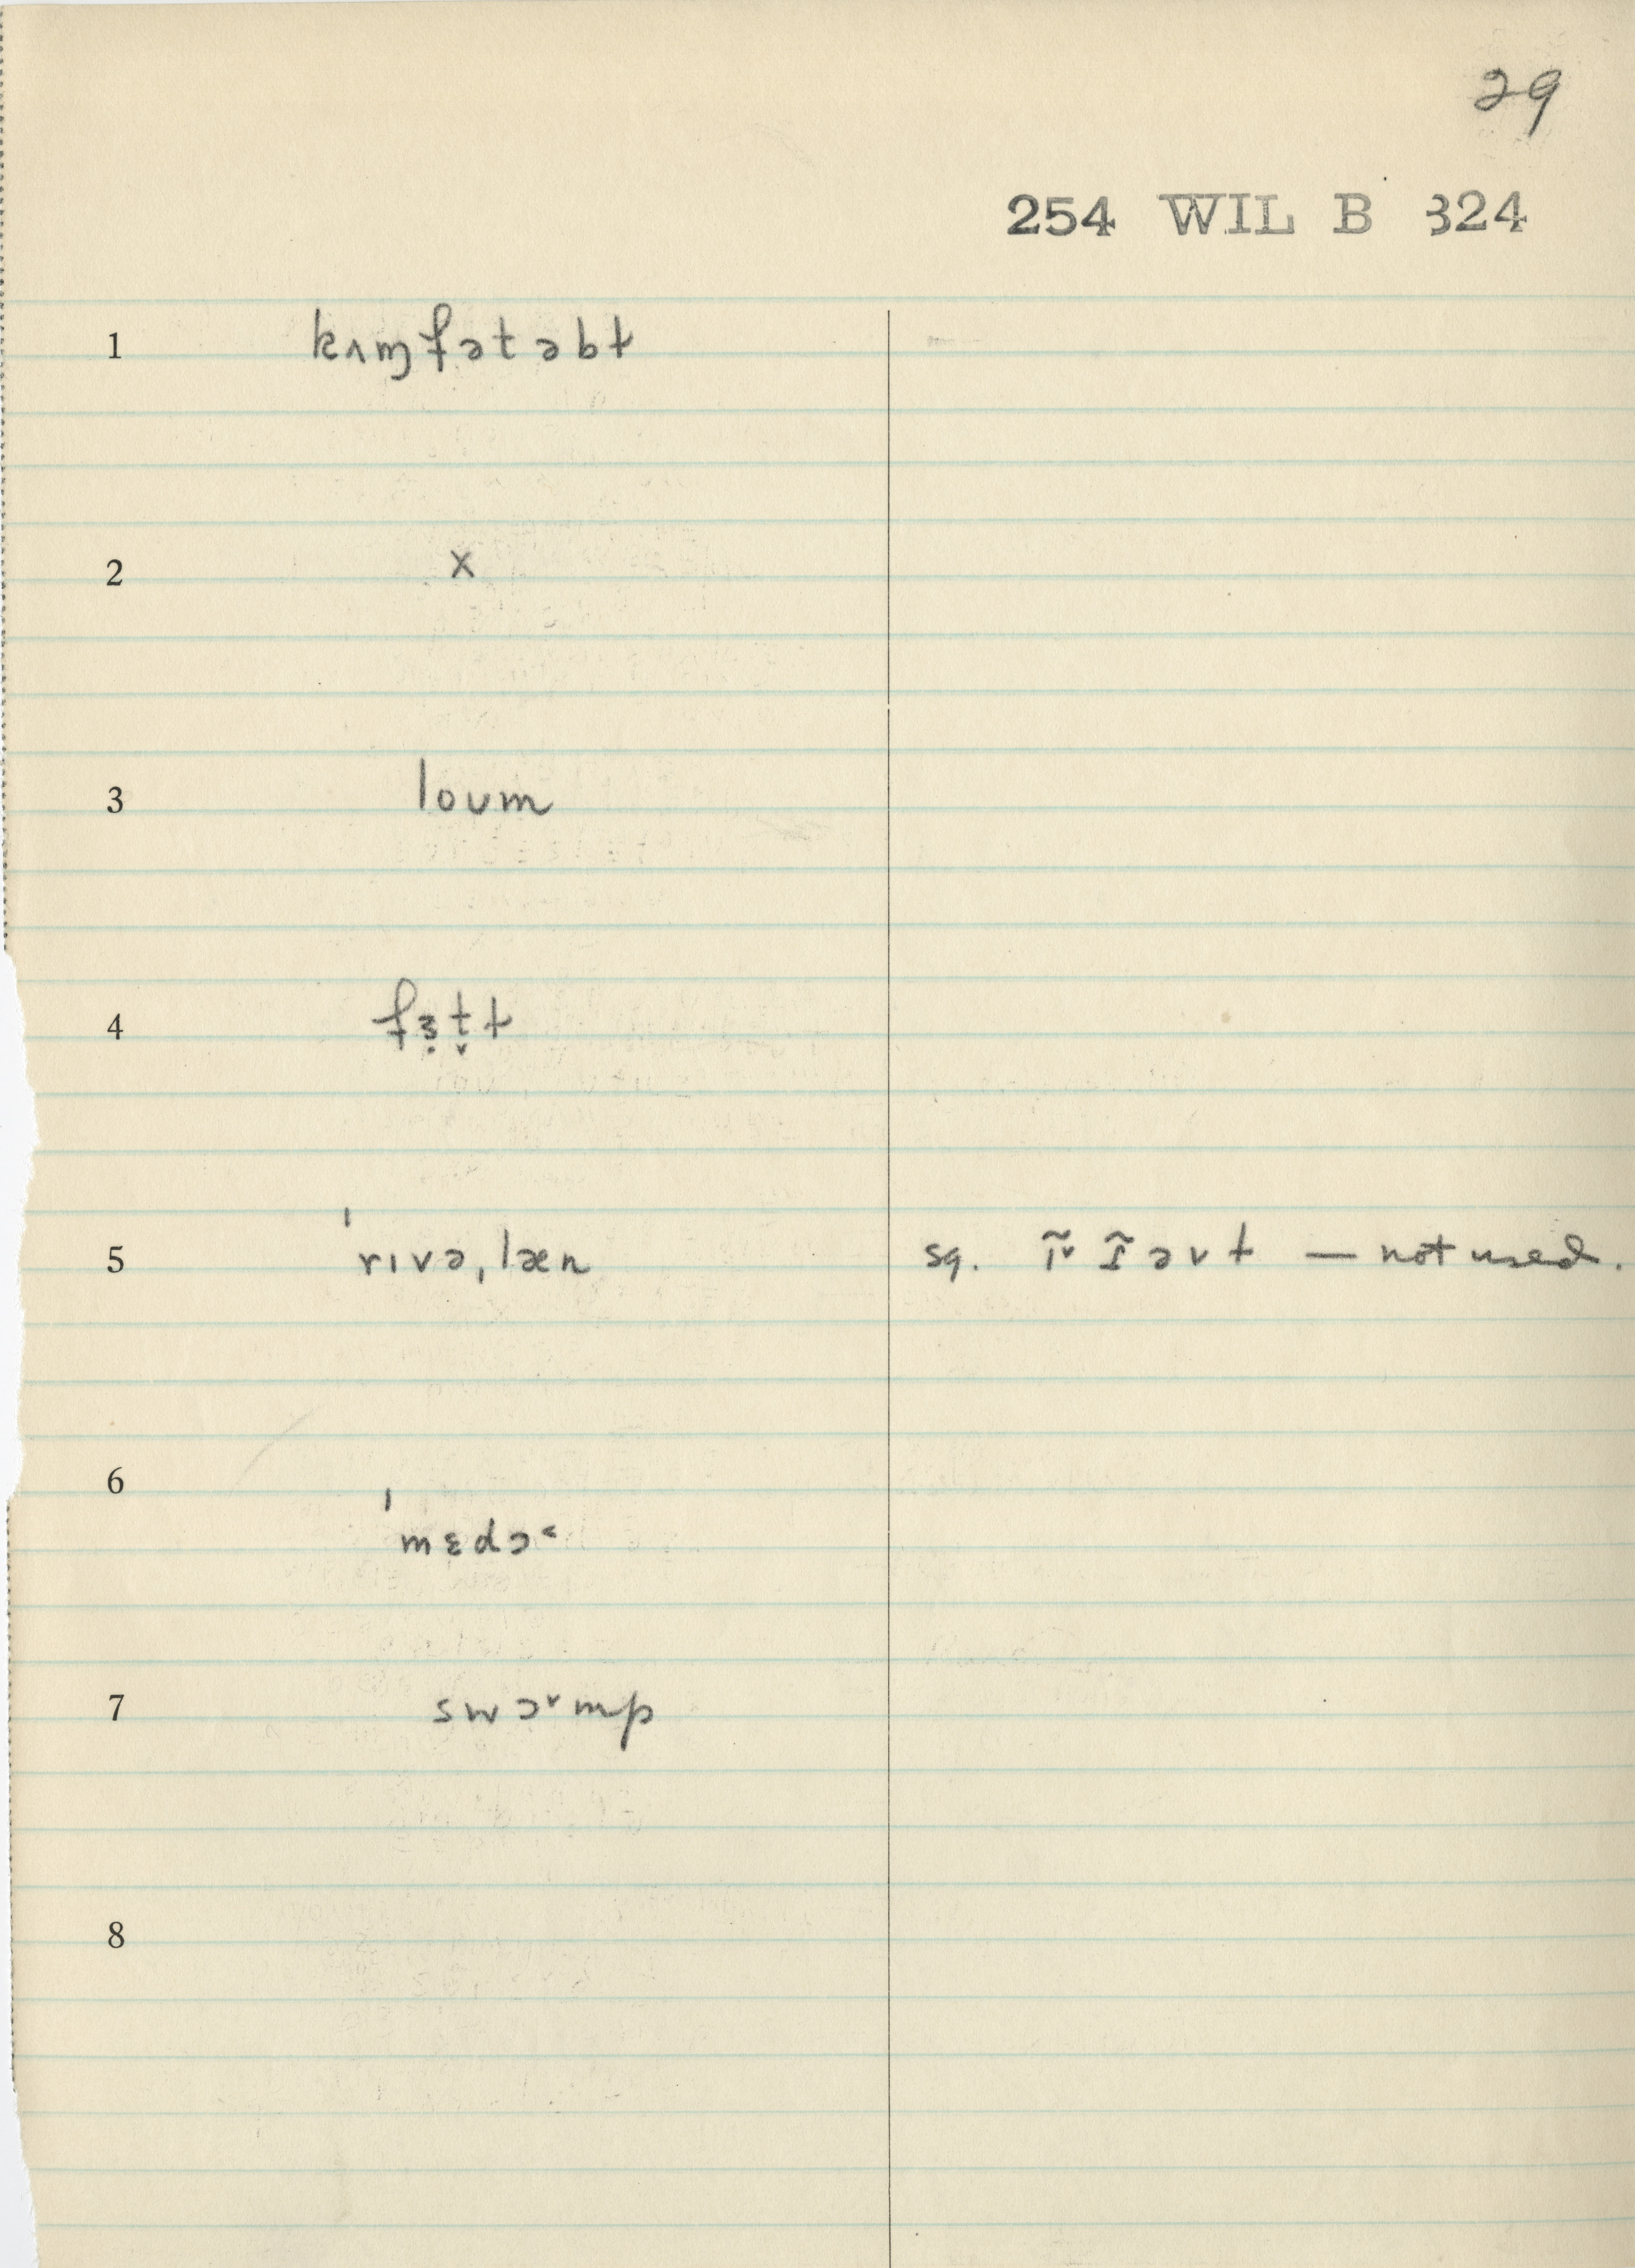 29
254 WIL B 324
1 kʌɱfətəbł
2 x
3 loʊm
4 fɜ̣t̬ł
5 ˈrɪvəˌlæn sg. — not used.
6 ˈmɛdɔ˂
7 swɔ˅mp
8